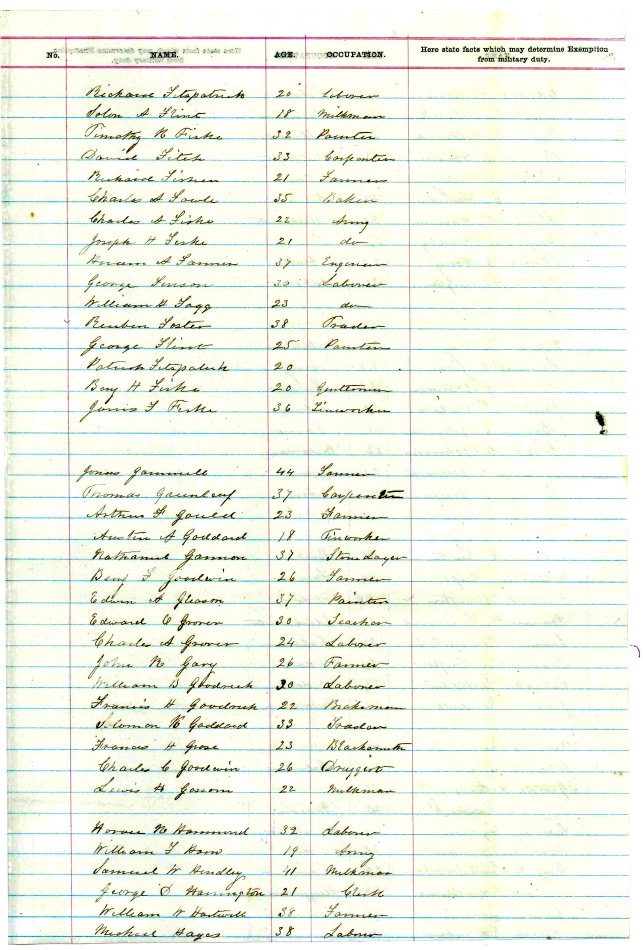 No. NAME. AGE. OCCUPATION. Here state facts which may determine Exemption from military duty.
Richard Fitzpatrick 20 Laborer
Solon A Flint 18 Milkman
Timothy B Fiske 32 Painter
David Fitch 33 Carpenter
Richard 21 Farmer
Charles A Fowle 35 Baker
Charles A Fiske 22 Army
Joseph H Fiske 21 do
Hiram A Farmer 37 Engineer
George 30 Laborer
William H Fagg 23 do
Reuben Foster 38 Trader
George Flint 25 Painter
Patrick Fitzpatrick 20
Benj H Fiske 20 Gentleman
F Fiske 36 Tinworker
Jonas Gammell 44 Farmer
Thomas Greenleaf 37 Carpenter
Arthur F Gould 23 Farmer
Austin A Goddard 18 Tinworker
Nathaniel Gannon 37 Stone Layer
Benj F Goodwin 26 Farmer
Edwin A Gleason 37 Painter
Edward C Grover 30 Teacher
Charles A Grover 24 Laborer
John R Gary 26 Farmer
William B Goodrich 30 Laborer
Francis H Goodrich 22 Brakeman
Solomon K Goddard 33 Trader
Francis H Grose 23 Blacksmith
Charles C Goodwin 26 Druggist
Lewis H Gossom 22 Milkman
Horace N Hammond 32 Laborer
William F Ham 19 Army
Samuel W Hindley 41 Milkman
George D Harrington 21 Clerk
William W Hartwell 38 Farmer
Michael Hayes 38 Laborer